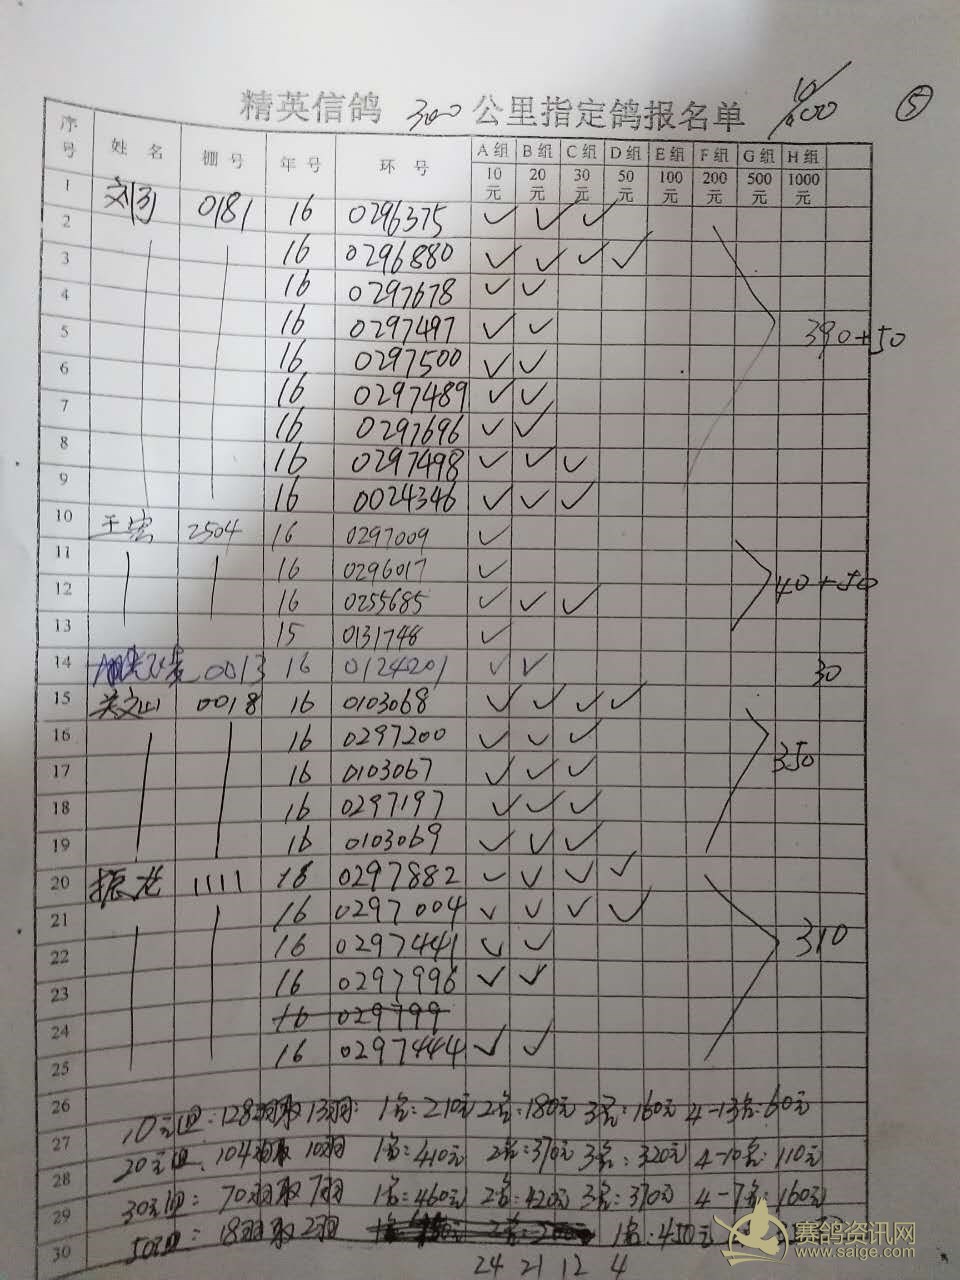 精英信鸽 300 公里指定鸽报名单 ⑤
序号 姓名 棚号 年号 环号 A组 B组 C组 D组 E组 F组 G组 H组
10元 20元 30元 50元 100元 200元 500元 1000元
1 0181 16 0296375 ✓ ✓ ✓
2 16 0296880 ✓ ✓ ✓ ✓
3 16 0297678 ✓ ✓
4 16 0297497 ✓ ✓ 390+50
5 16 0297500 ✓ ✓
6 16 0297489 ✓ ✓
7 16 0297696 ✓ ✓
8 16 0297498 ✓ ✓ ✓
9 16 0024346 ✓ ✓ ✓
10 2504 16 0297009 ✓
11 16 0296017 ✓ 40+50
12 16 0255685 ✓ ✓ ✓
13 15 0131748 ✓
14 0013 16 0124201 ✓ ✓ 30
15 关文山 0018 16 0103068 ✓ ✓ ✓ ✓
16 16 0297200 ✓ ✓ ✓ 350
17 16 0103067 ✓ ✓ ✓
18 16 0297197 ✓ ✓ ✓
19 16 0103069 ✓ ✓ ✓
20 振龙 1111 16 0297882 ✓ ✓ ✓ ✓
21 16 0297004 ✓ ✓ ✓ ✓
22 16 0297441 ✓ ✓ 310
23 16 0297996 ✓ ✓
24 16 029799
25 16 0297444 ✓ ✓
26 10元组:128羽取13羽: 1名:210元 2名:180元 3名:160元 4-13名:60元
27 20元组:104羽取10羽 1名:410元 2名:370元 3名:320元 4-10名:110元
28 30元组:70羽取7羽 1名:460元 2名:420元 3名:370元 4-7名:160元
29 50元组:18羽取2羽 1名:450元
30 24 21 12 4
赛鸽资讯网
www.saige.com